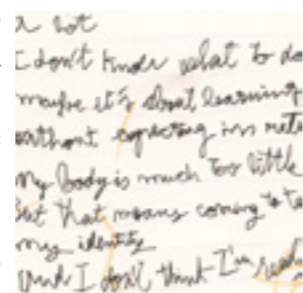 a lot
I don't know what to do
maybe it's about learning
without expecting in return
my body is much too little
But that means coming to te
my identity
And I don't think I'm read